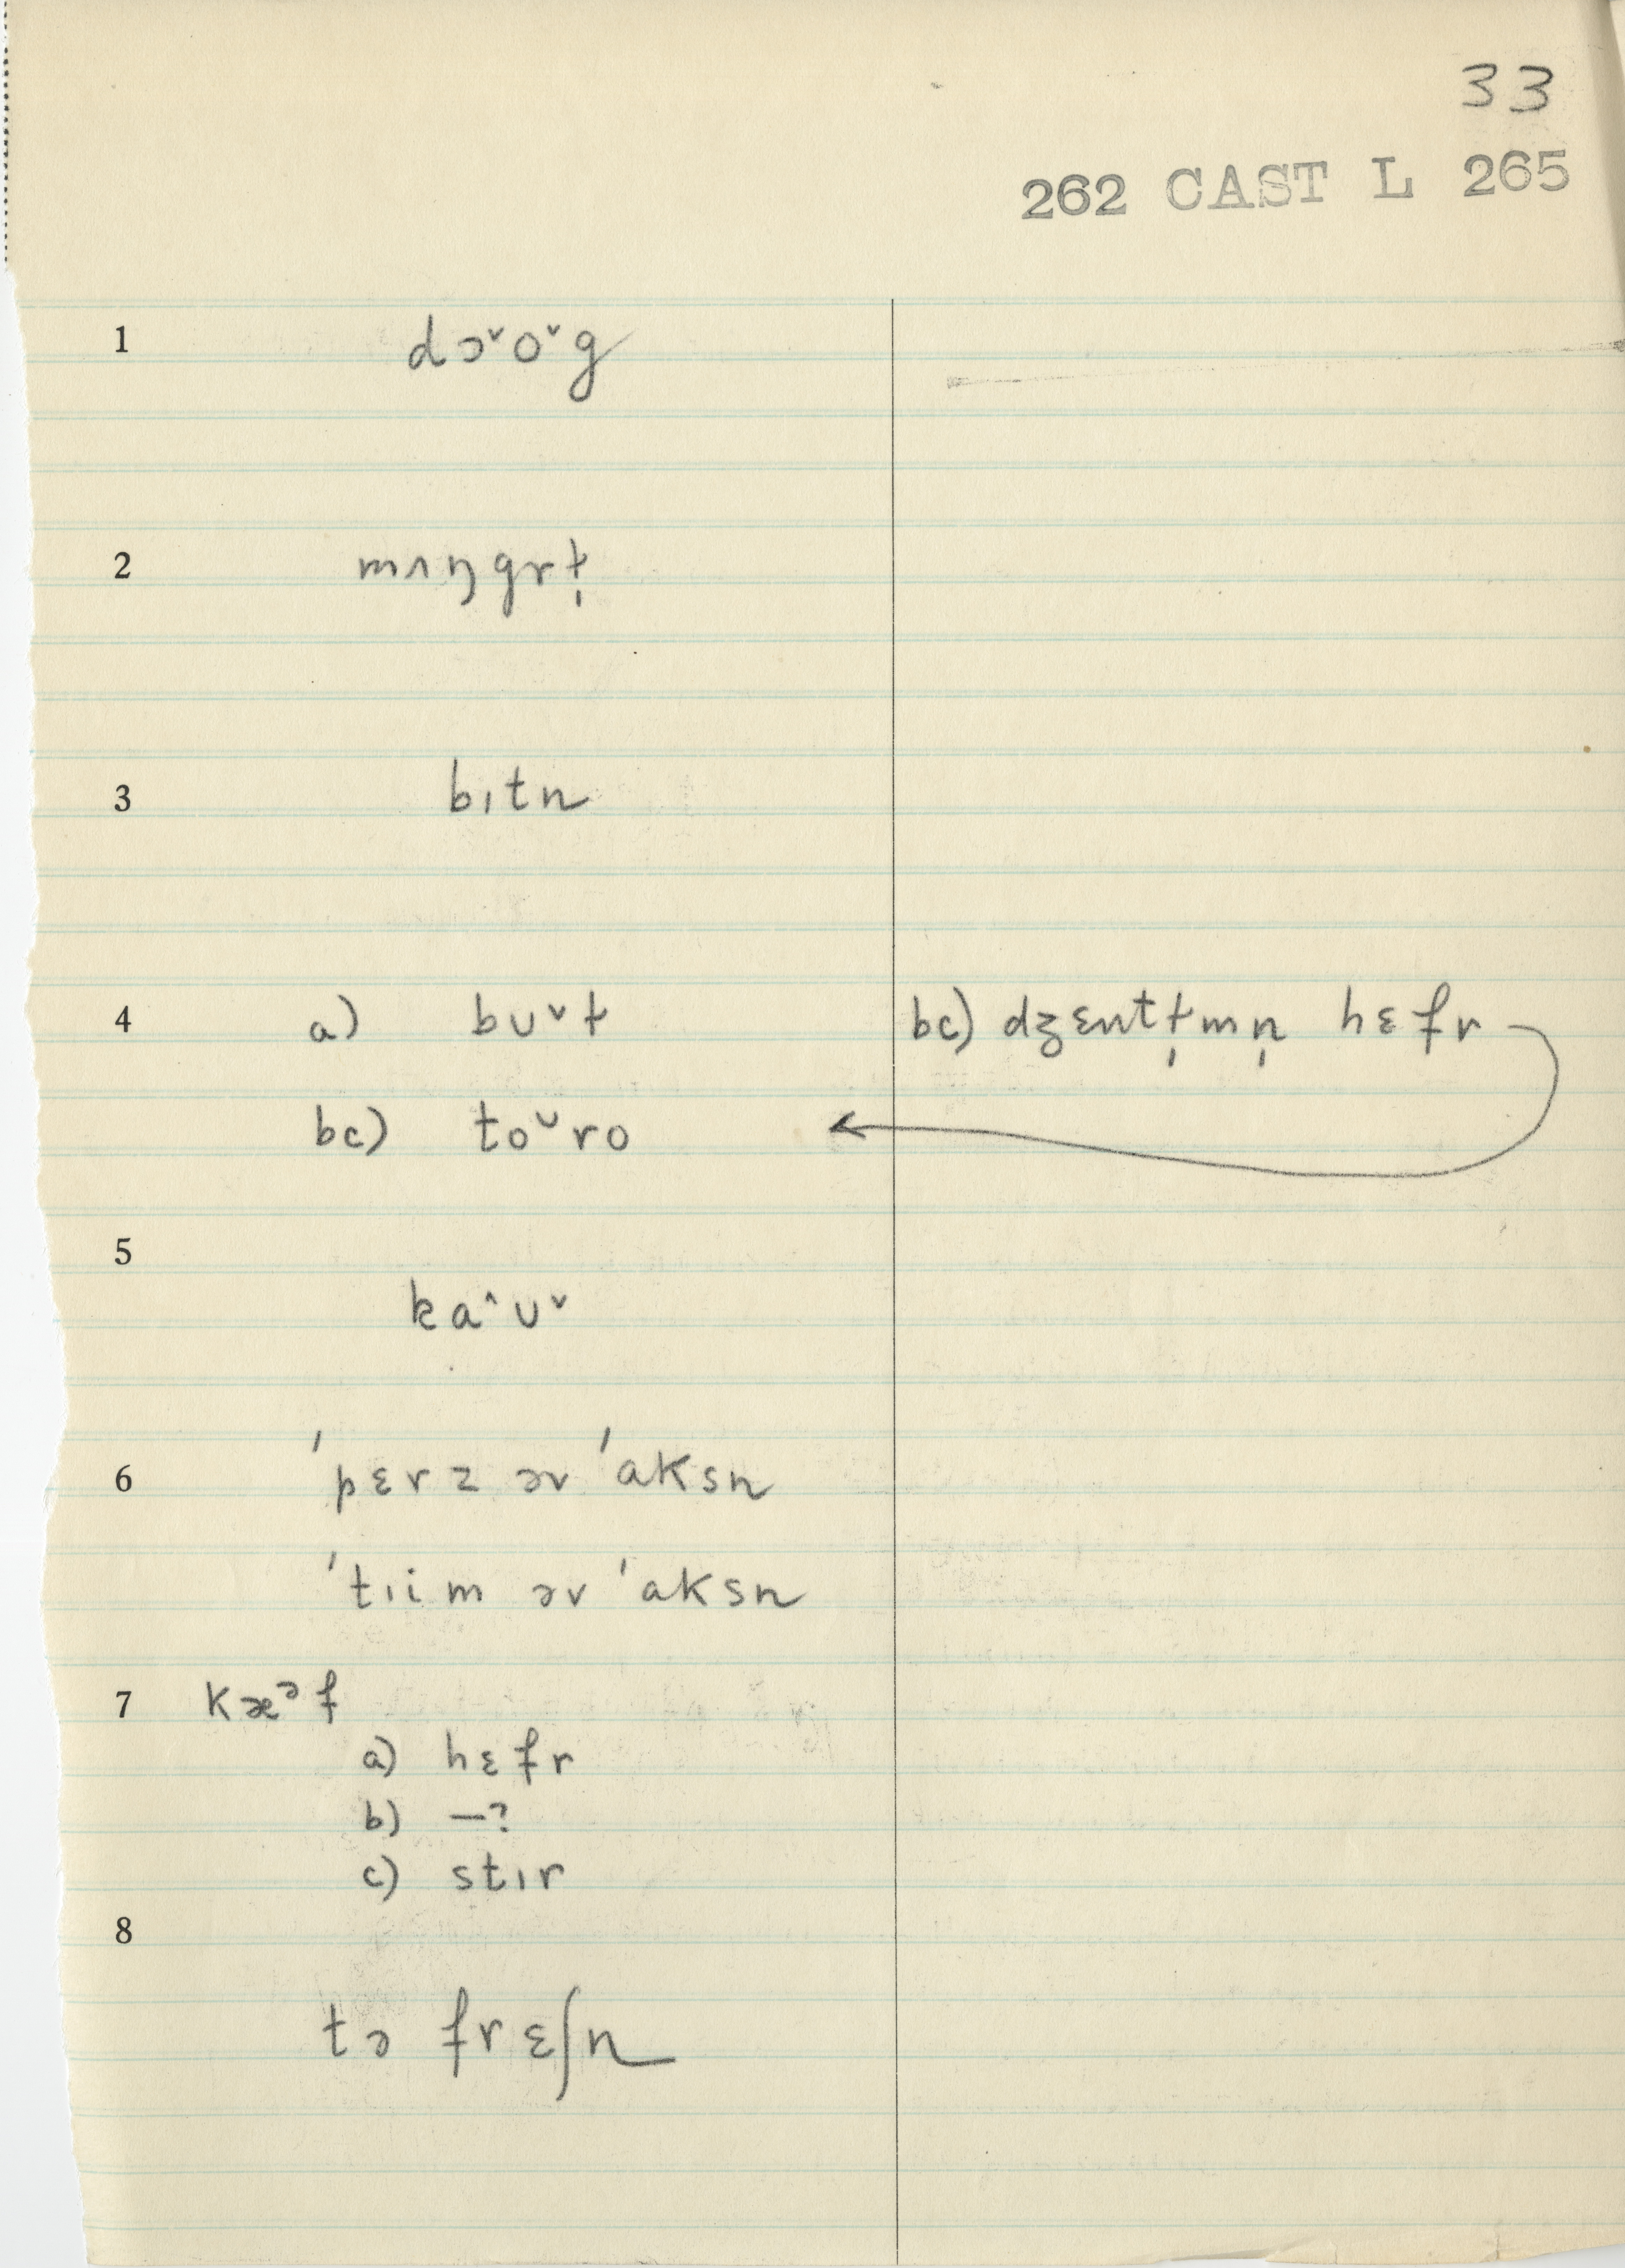 33
262 CAST L 265
1 dɔˇoˇg
2 mʌŋgrɫ̩
3 bɪtn
4 a) bʊˇɫ bc) dʒɛntɫ̩mn̩ hɛfr
bc) toᵕro
5
kaˆʊˇ
6 ˈpɛrz əv ˈaksn
ˈtɪim əv ˈaksn
7 kæᵊf
a) hɛfr
b) —?
c) stɪr
8
tə frɛʃn